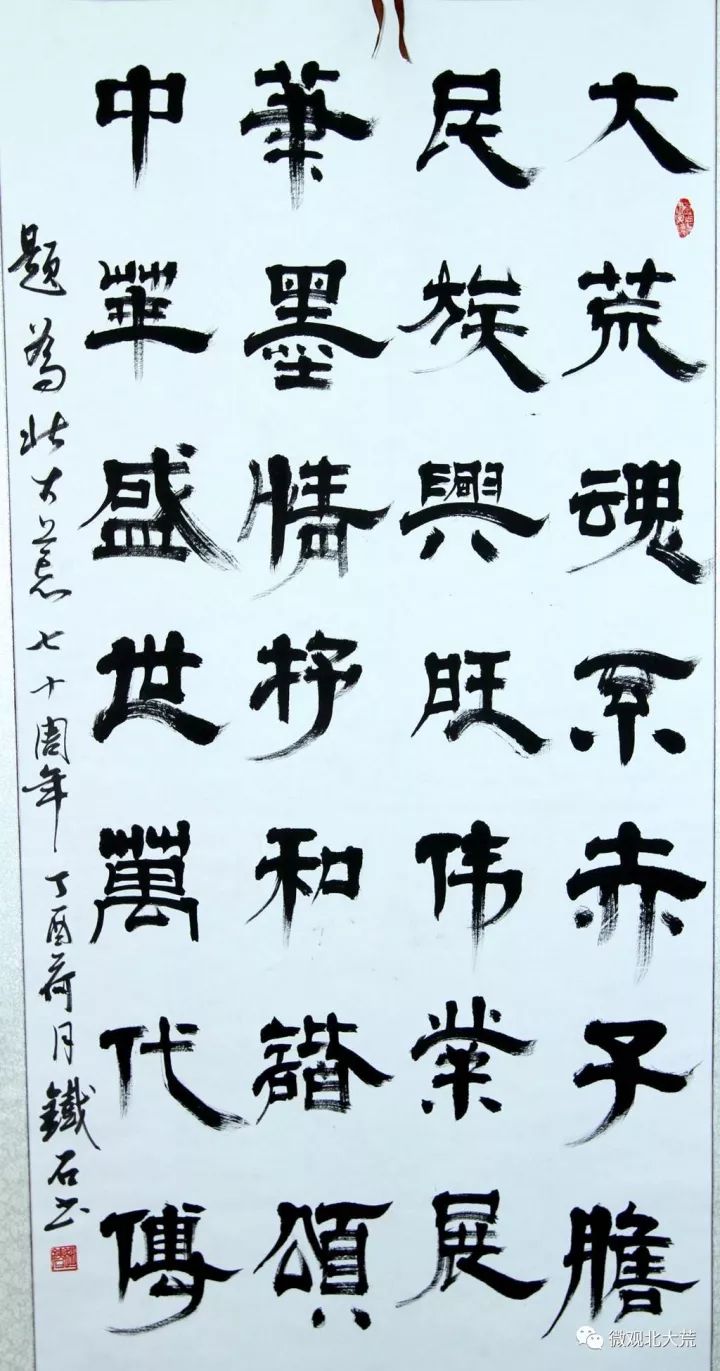 大荒魂系赤子膽
民族興旺伟業展
筆墨情抒和諧頌
中華盛世萬代傳
題為北大荒七十周年丁酉荷月鐵石书
微观北大荒